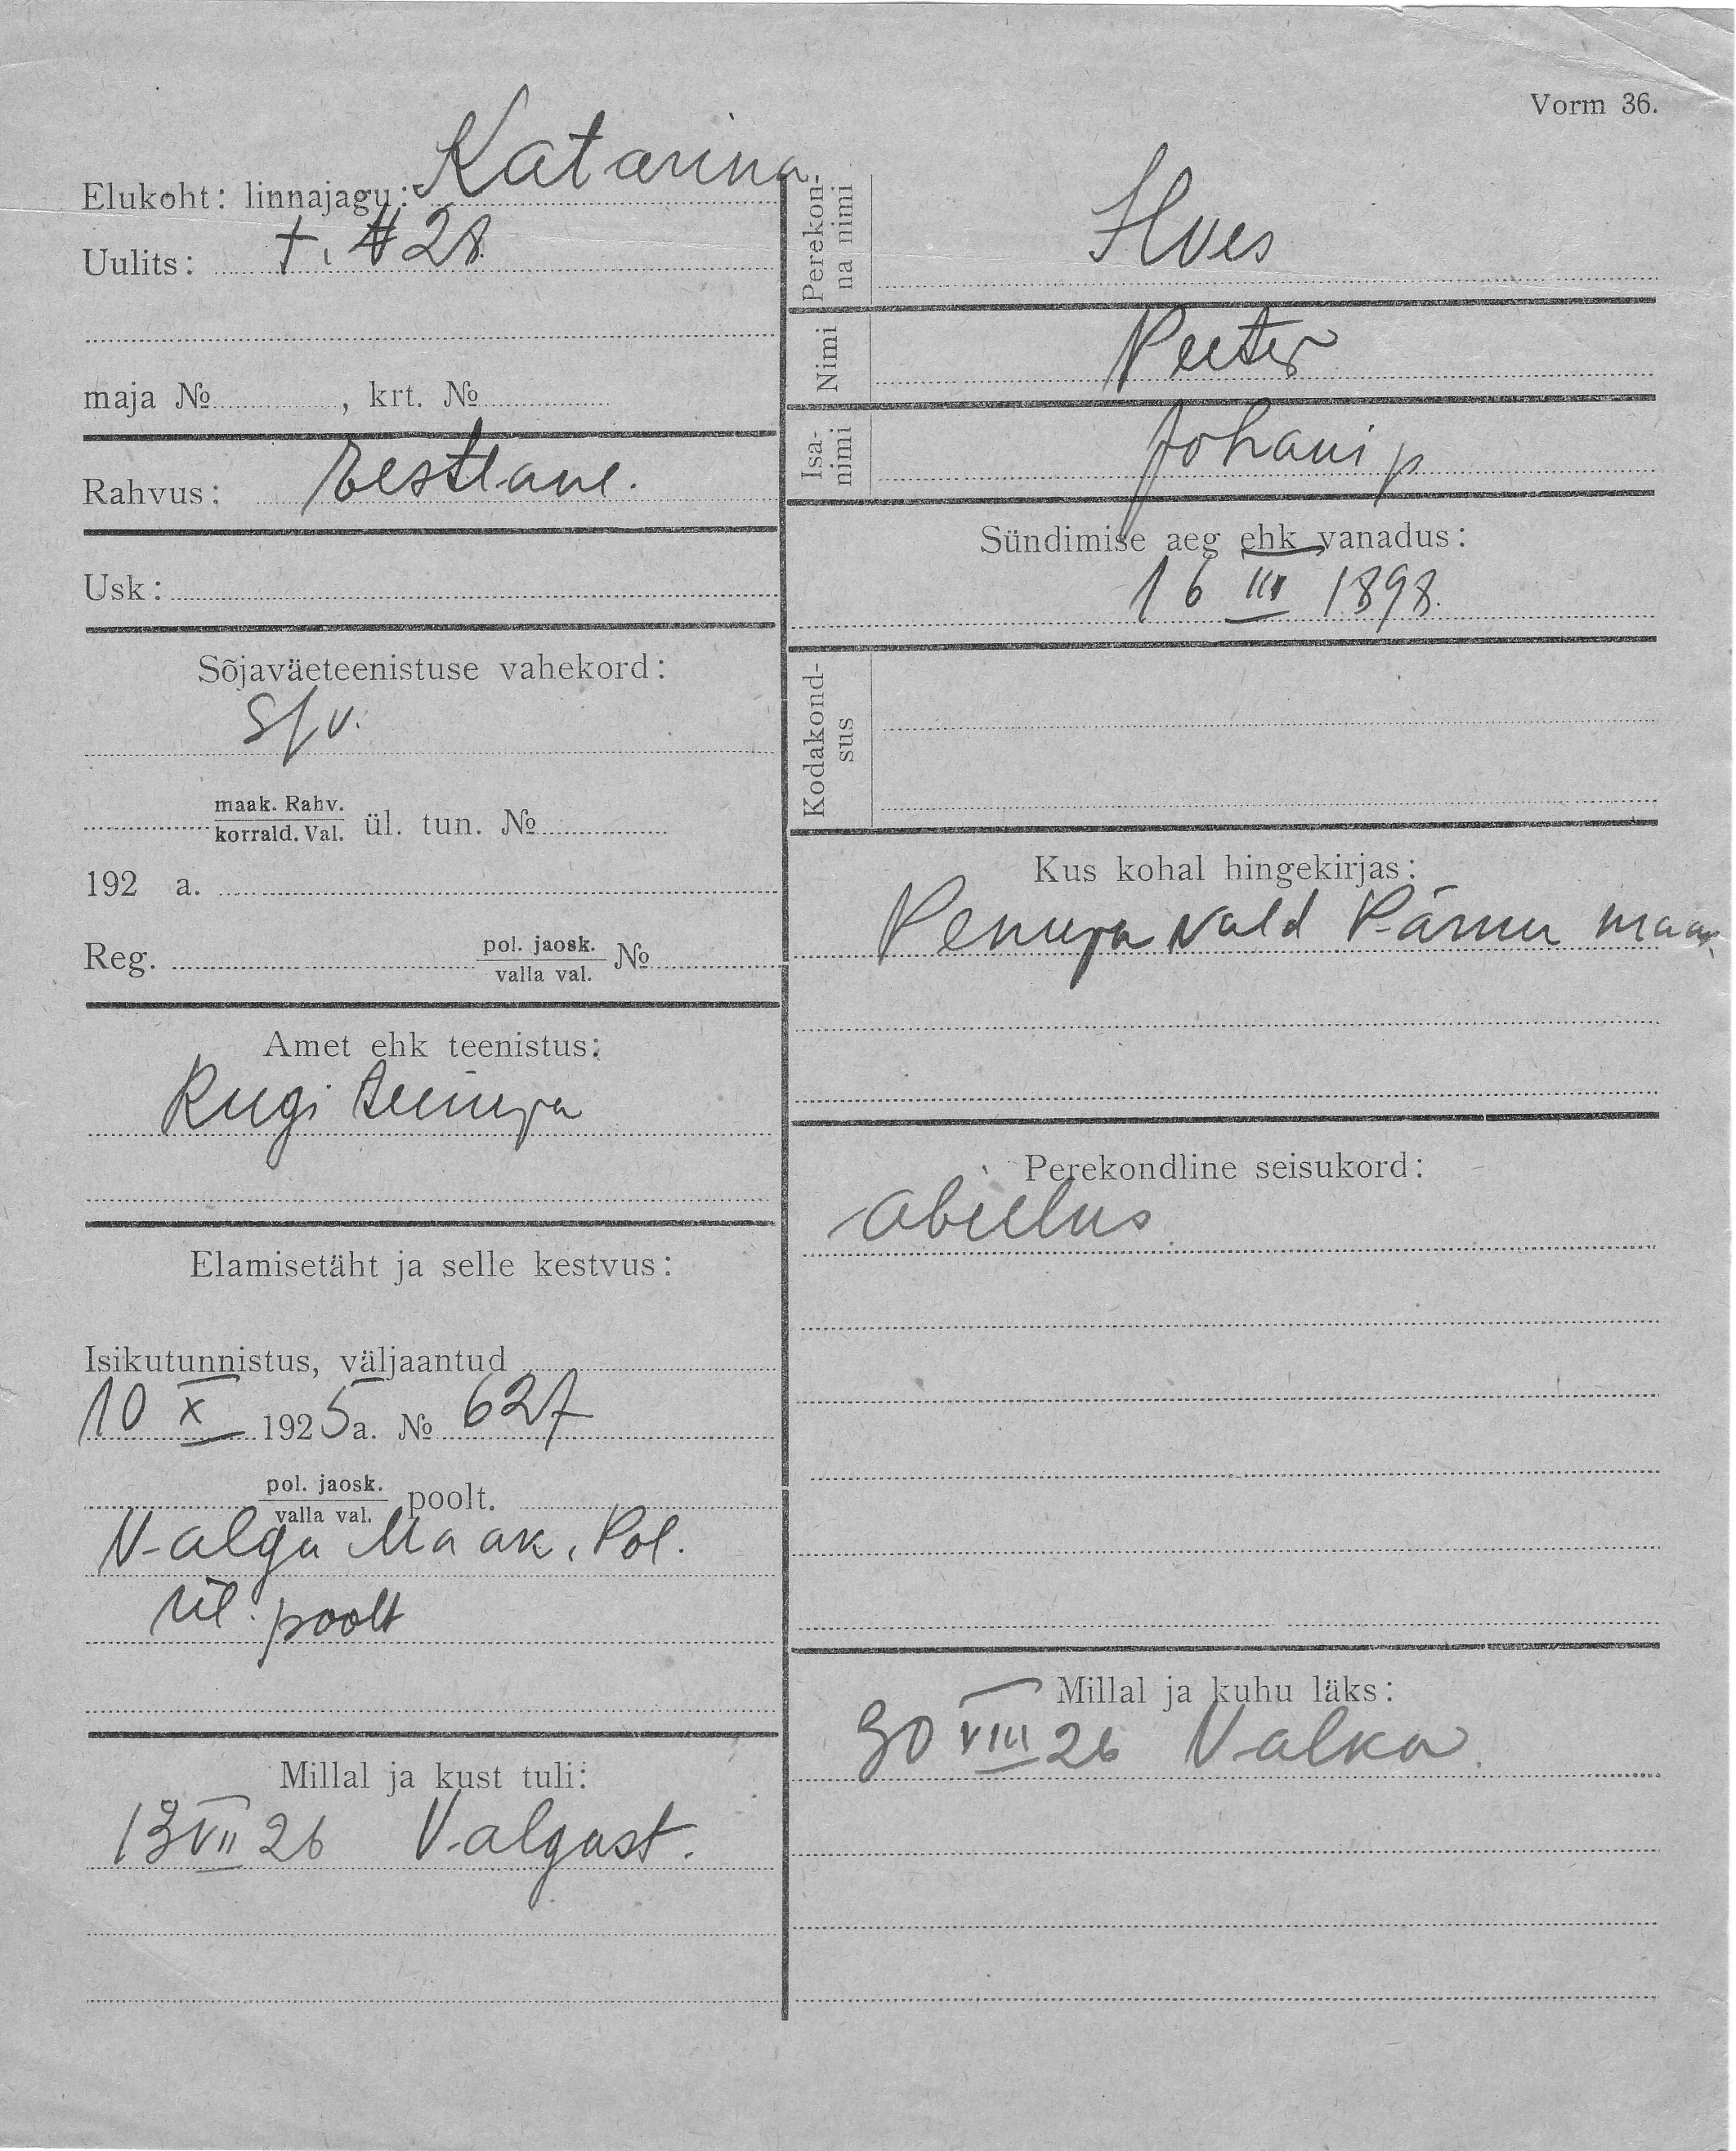 Vorm 36.
Elukoht: linnajagu: Katarina
Uulits: t. № 28.
maja № , krt. №
Rahvus: Eestlane.
Usk:
Sõjaväeteenistuse vahekord:
S/v.
maak. Rahv.
korrald. Val. ül. tun. №
192 a.
Reg. pol. jaosk. №
valla val.
Amet ehk teenistus:
Riigi teenija
Elamisetäht ja selle kestvus:
Isikutunnistus, väljaantud
10 X 1925 a. № 627
pol. jaosk. poolt.
valla val.
Valga Maak. Pol.
ül. poolt
Millal ja kust tuli:
13 VII 26 Valgast.
Perekon-
na nimi
Ilves
Nimi Peeter
Isa-
nimi
Johani p
Sündimise aeg ehk vanadus:
16 III 1898.
Kodakond-
sus
Kus kohal hingekirjas:
Penuja vald Pärnu maak.
Perekondline seisukord:
abielus
Millal ja kuhu läks:
30 VIII 26 Valka.